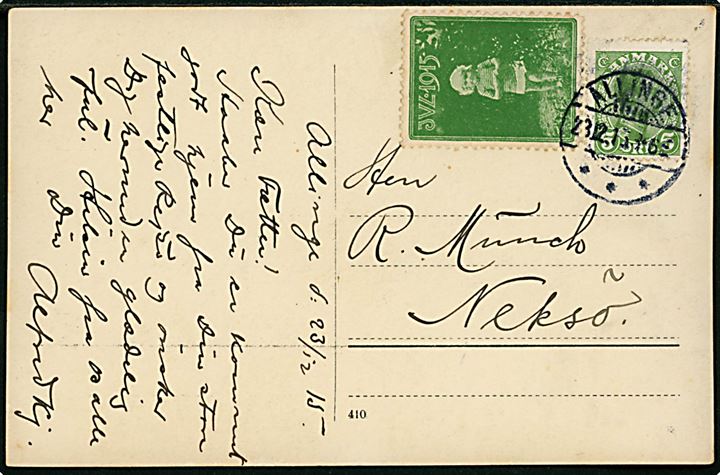 Allinge d. 23/12 15.
Kære Fætter!
Haaber Du er kommet
godt hjem fra Din store
festlige Rejse og ønsker
Dig herved en glædelig
Jul. Hilsen fra os alle
her
Din Alfred Kj.
JUL·1915
DANMARK
5 5
ALLINGE
23.12.15
Herr
R. Münch
Neksö.
410